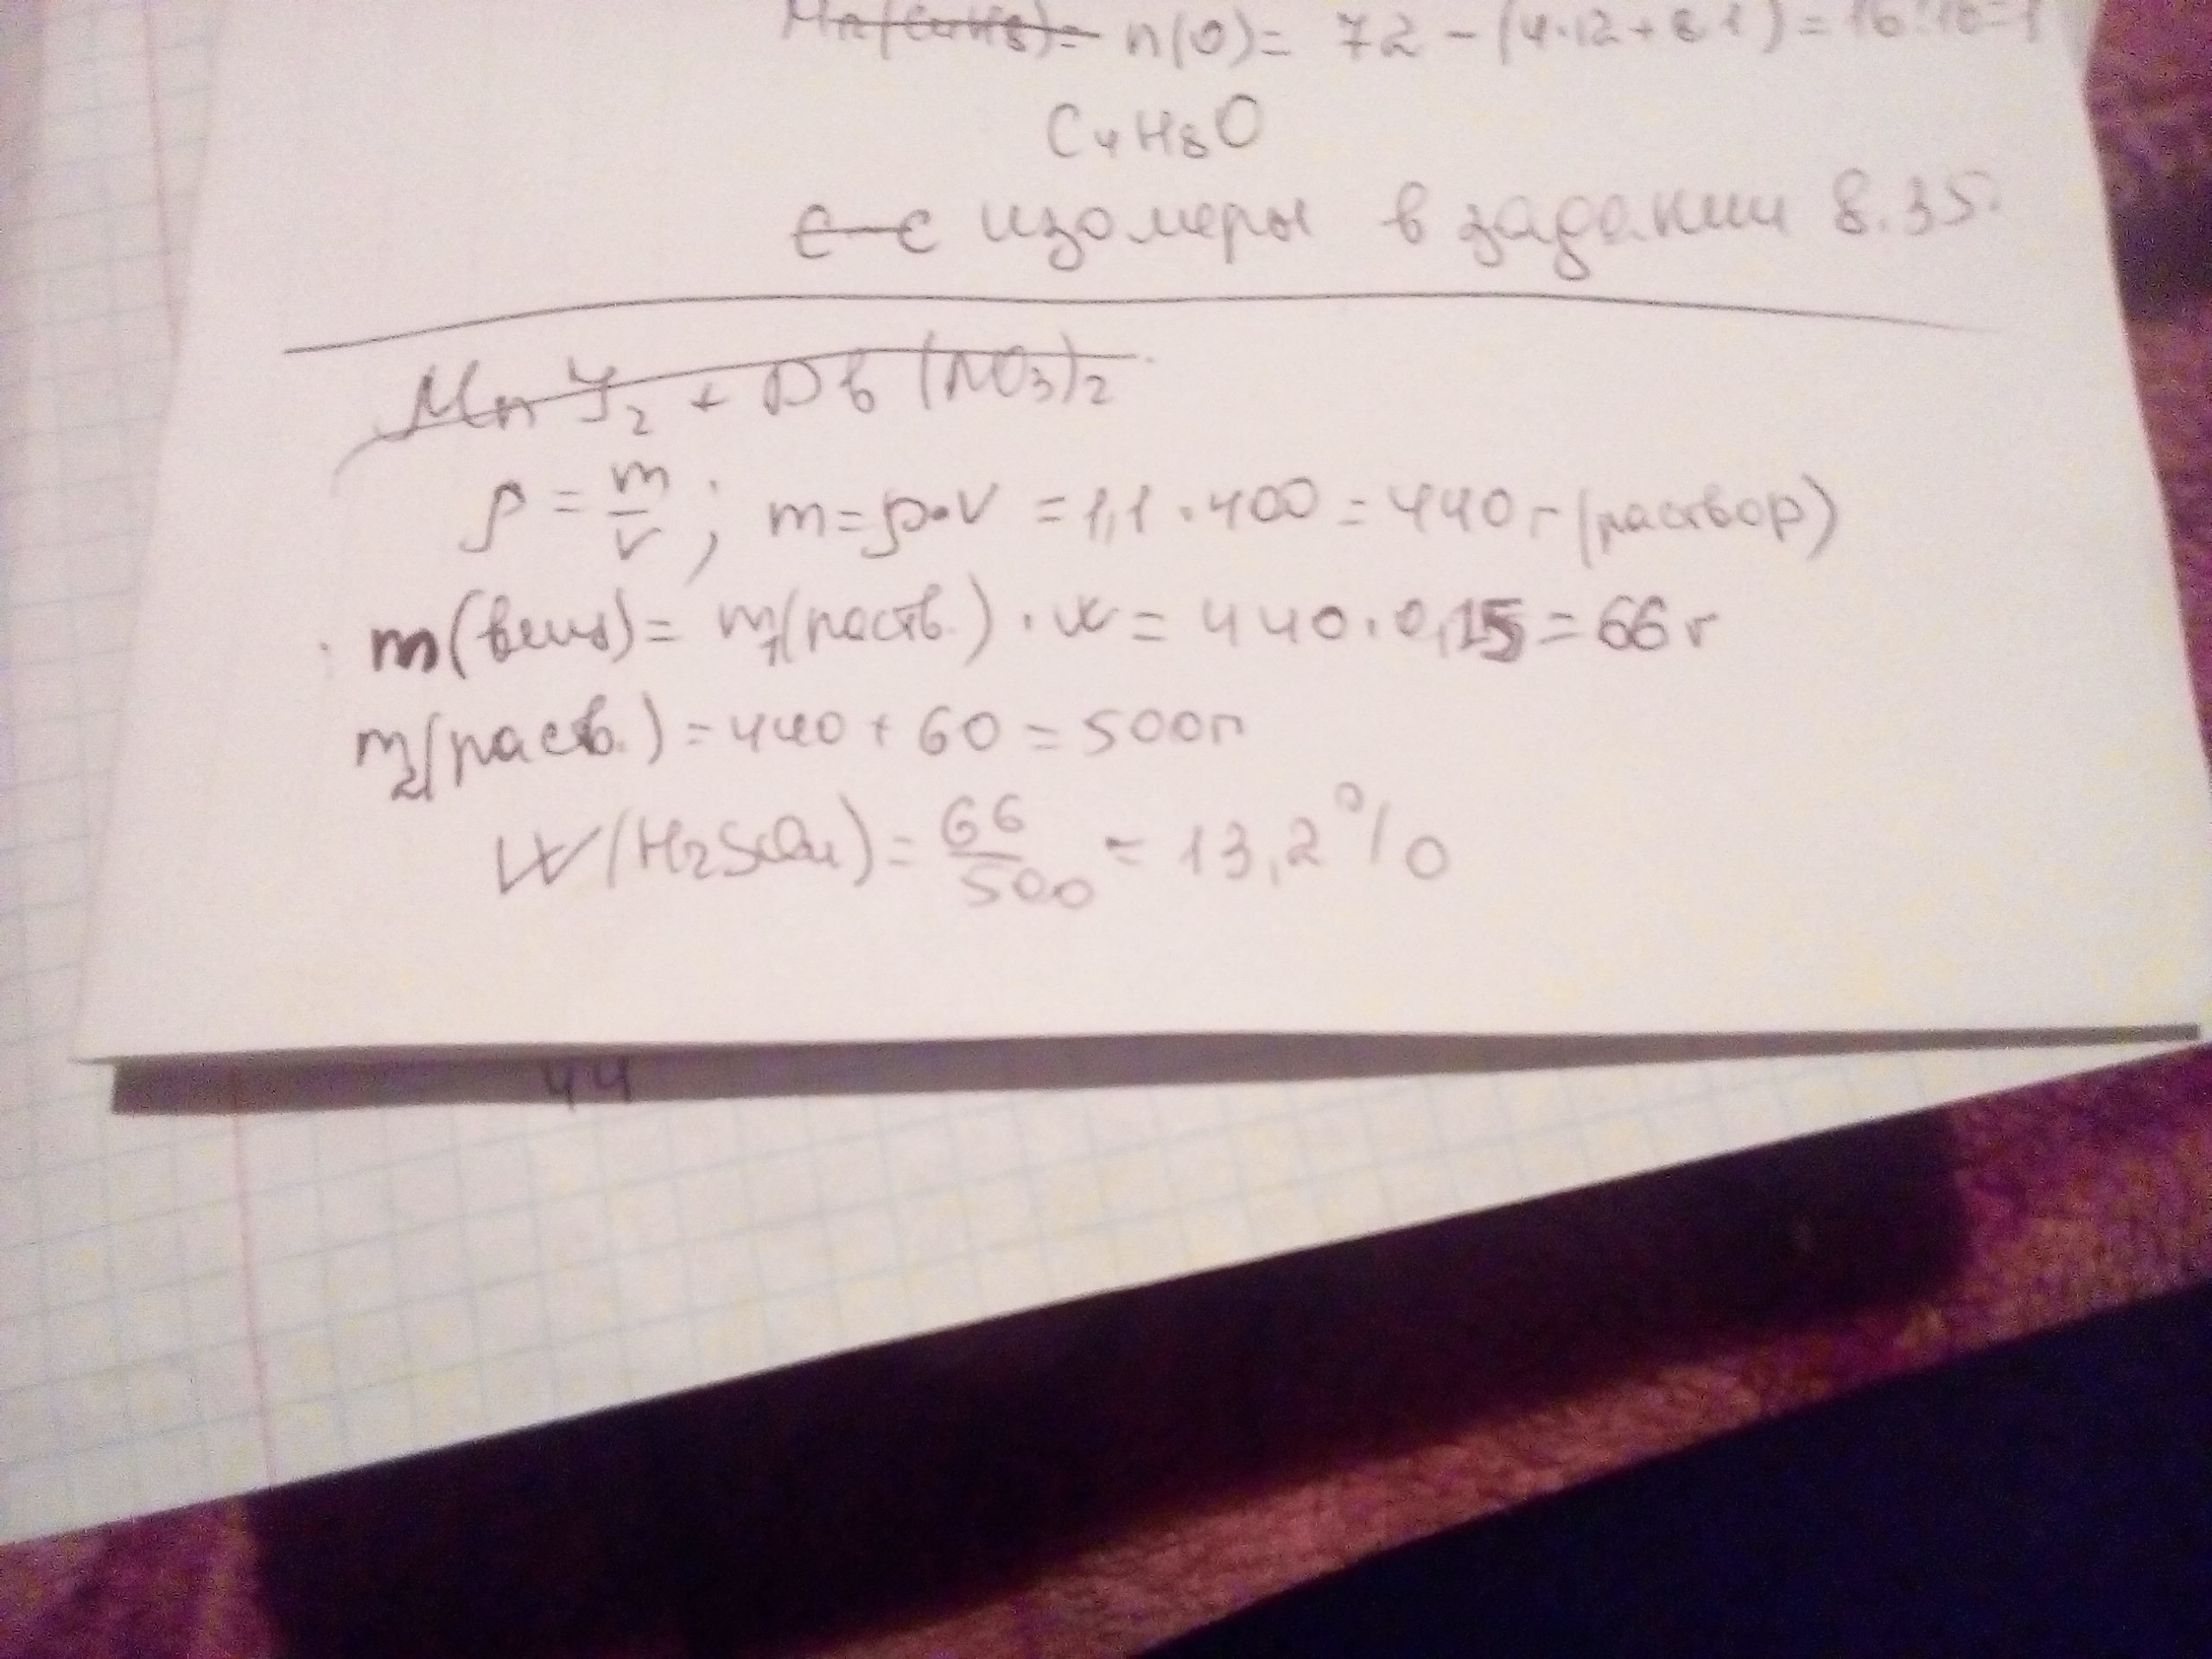 n(O)= 72 - (4·12+8·1)=16:16=1
C4H8O
c-c изомеры в задании 8.35.
MnJ2 + Pb(NO3)2
ρ = m/v ; m=ρ•V = 1,1 · 400 = 440 г (раствор)
m(вещ)= m1(раств.) · w = 440 · 0,15 = 66 г
m2(раств.) = 440 + 60 = 500г
W(H2SO4) = 66/500 = 13,2%
44